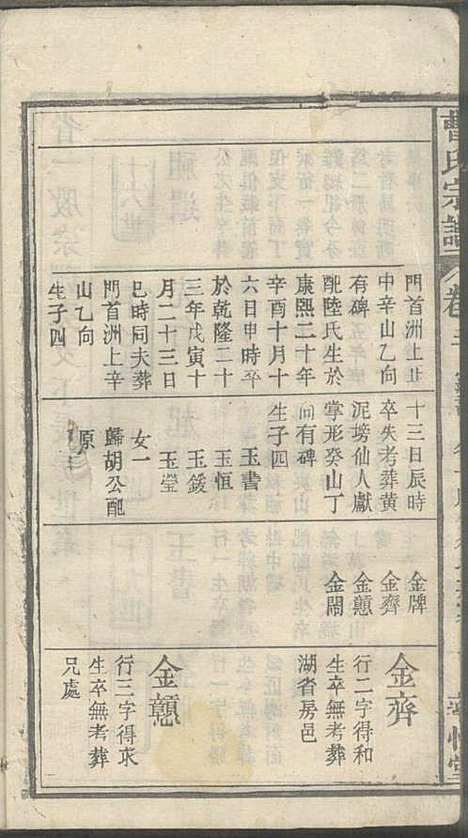 曹氏宗譜
卷
門首洲上
中辛山乙向
有碑
配陸氏生於
康熙二十年
辛酉十月十
六日申時卒
於乾隆二十
三年戊寅十
月二十三日
巳時同夫葬
門首洲上辛
山乙向
生子四
十三日辰時
卒失考葬黃
泥塝仙人獻
掌形癸山丁
向有碑
生子四
玉書
玉恒
玉鍰
玉瑩
女一
歸胡公配
原
金牌
金齊
金憓
金閙
金齊
行二字得和
生卒無考葬
湖省房邑
金憓
行三字得求
生卒無考葬
兄處